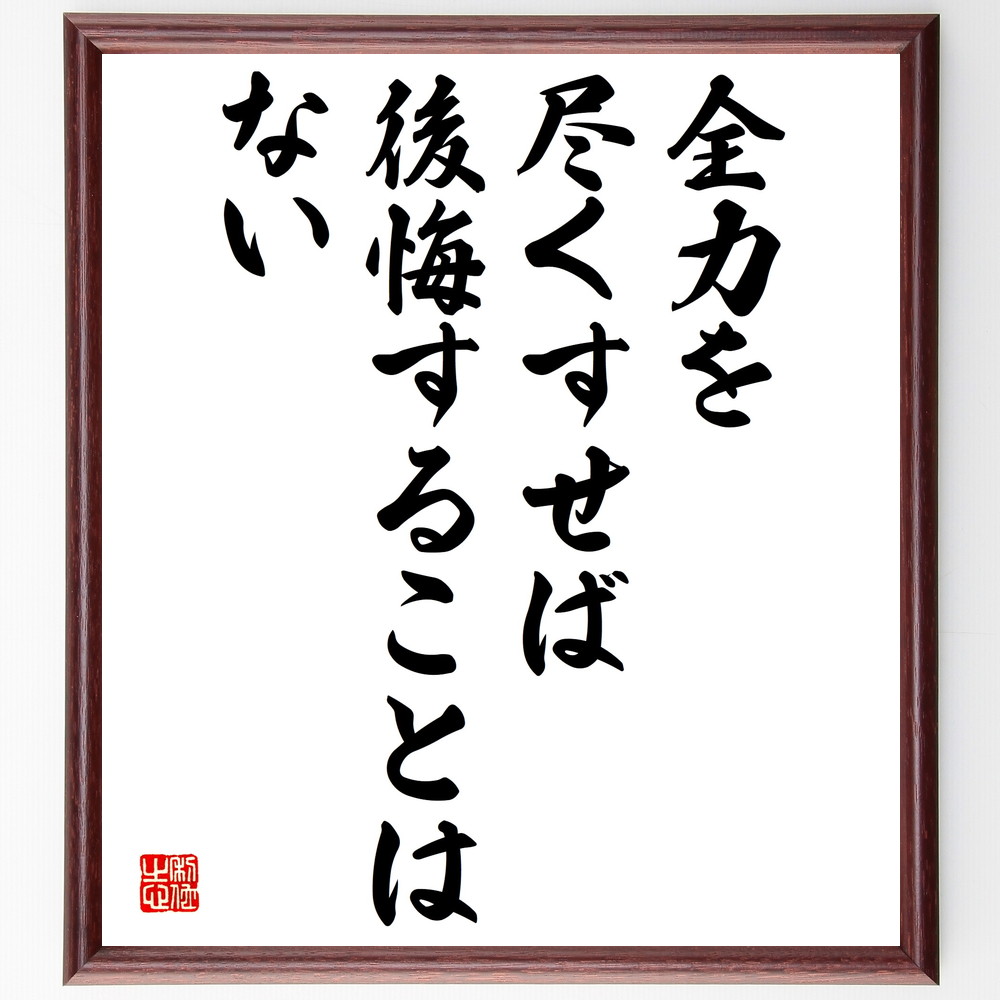 全力を
尽くすせば
後悔することは
ない